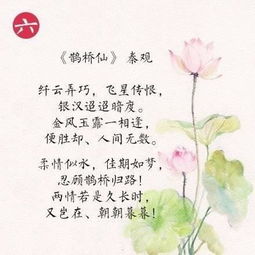 六
《鹊桥仙》 秦观
纤云弄巧，飞星传恨，
银汉迢迢暗度。
金风玉露一相逢，
便胜却、人间无数。
柔情似水，佳期如梦，
忍顾鹊桥归路！
两情若是久长时，
又岂在、朝朝暮暮！